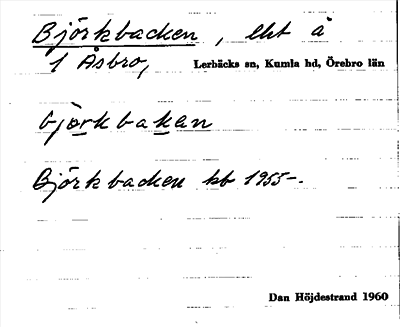 Björkbacken, lht å
1 Åsbro, Lerbäcks sn, Kumla hd, Örebro län
björkbakan
Björkbacken kb 1955-.
Dan Höjdestrand 1960